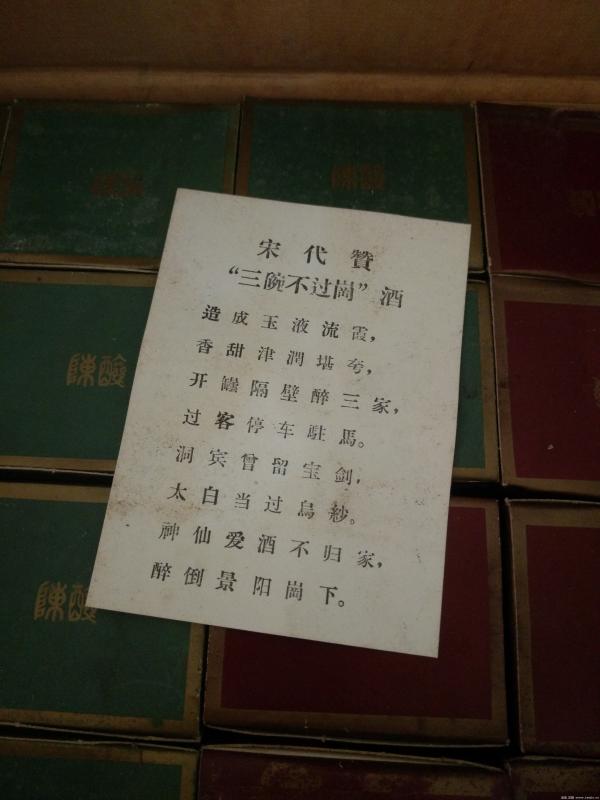 宋代贊
“三碗不过崗”酒
造成玉液流霞，
香甜津潤堪夸，
开罈隔壁醉三家，
过客停车駐馬。
洞宾曾留宝剑，
太白当过烏紗。
神仙爱酒不归家，
醉倒景阳崗下。
陳釀
陳釀
陳釀